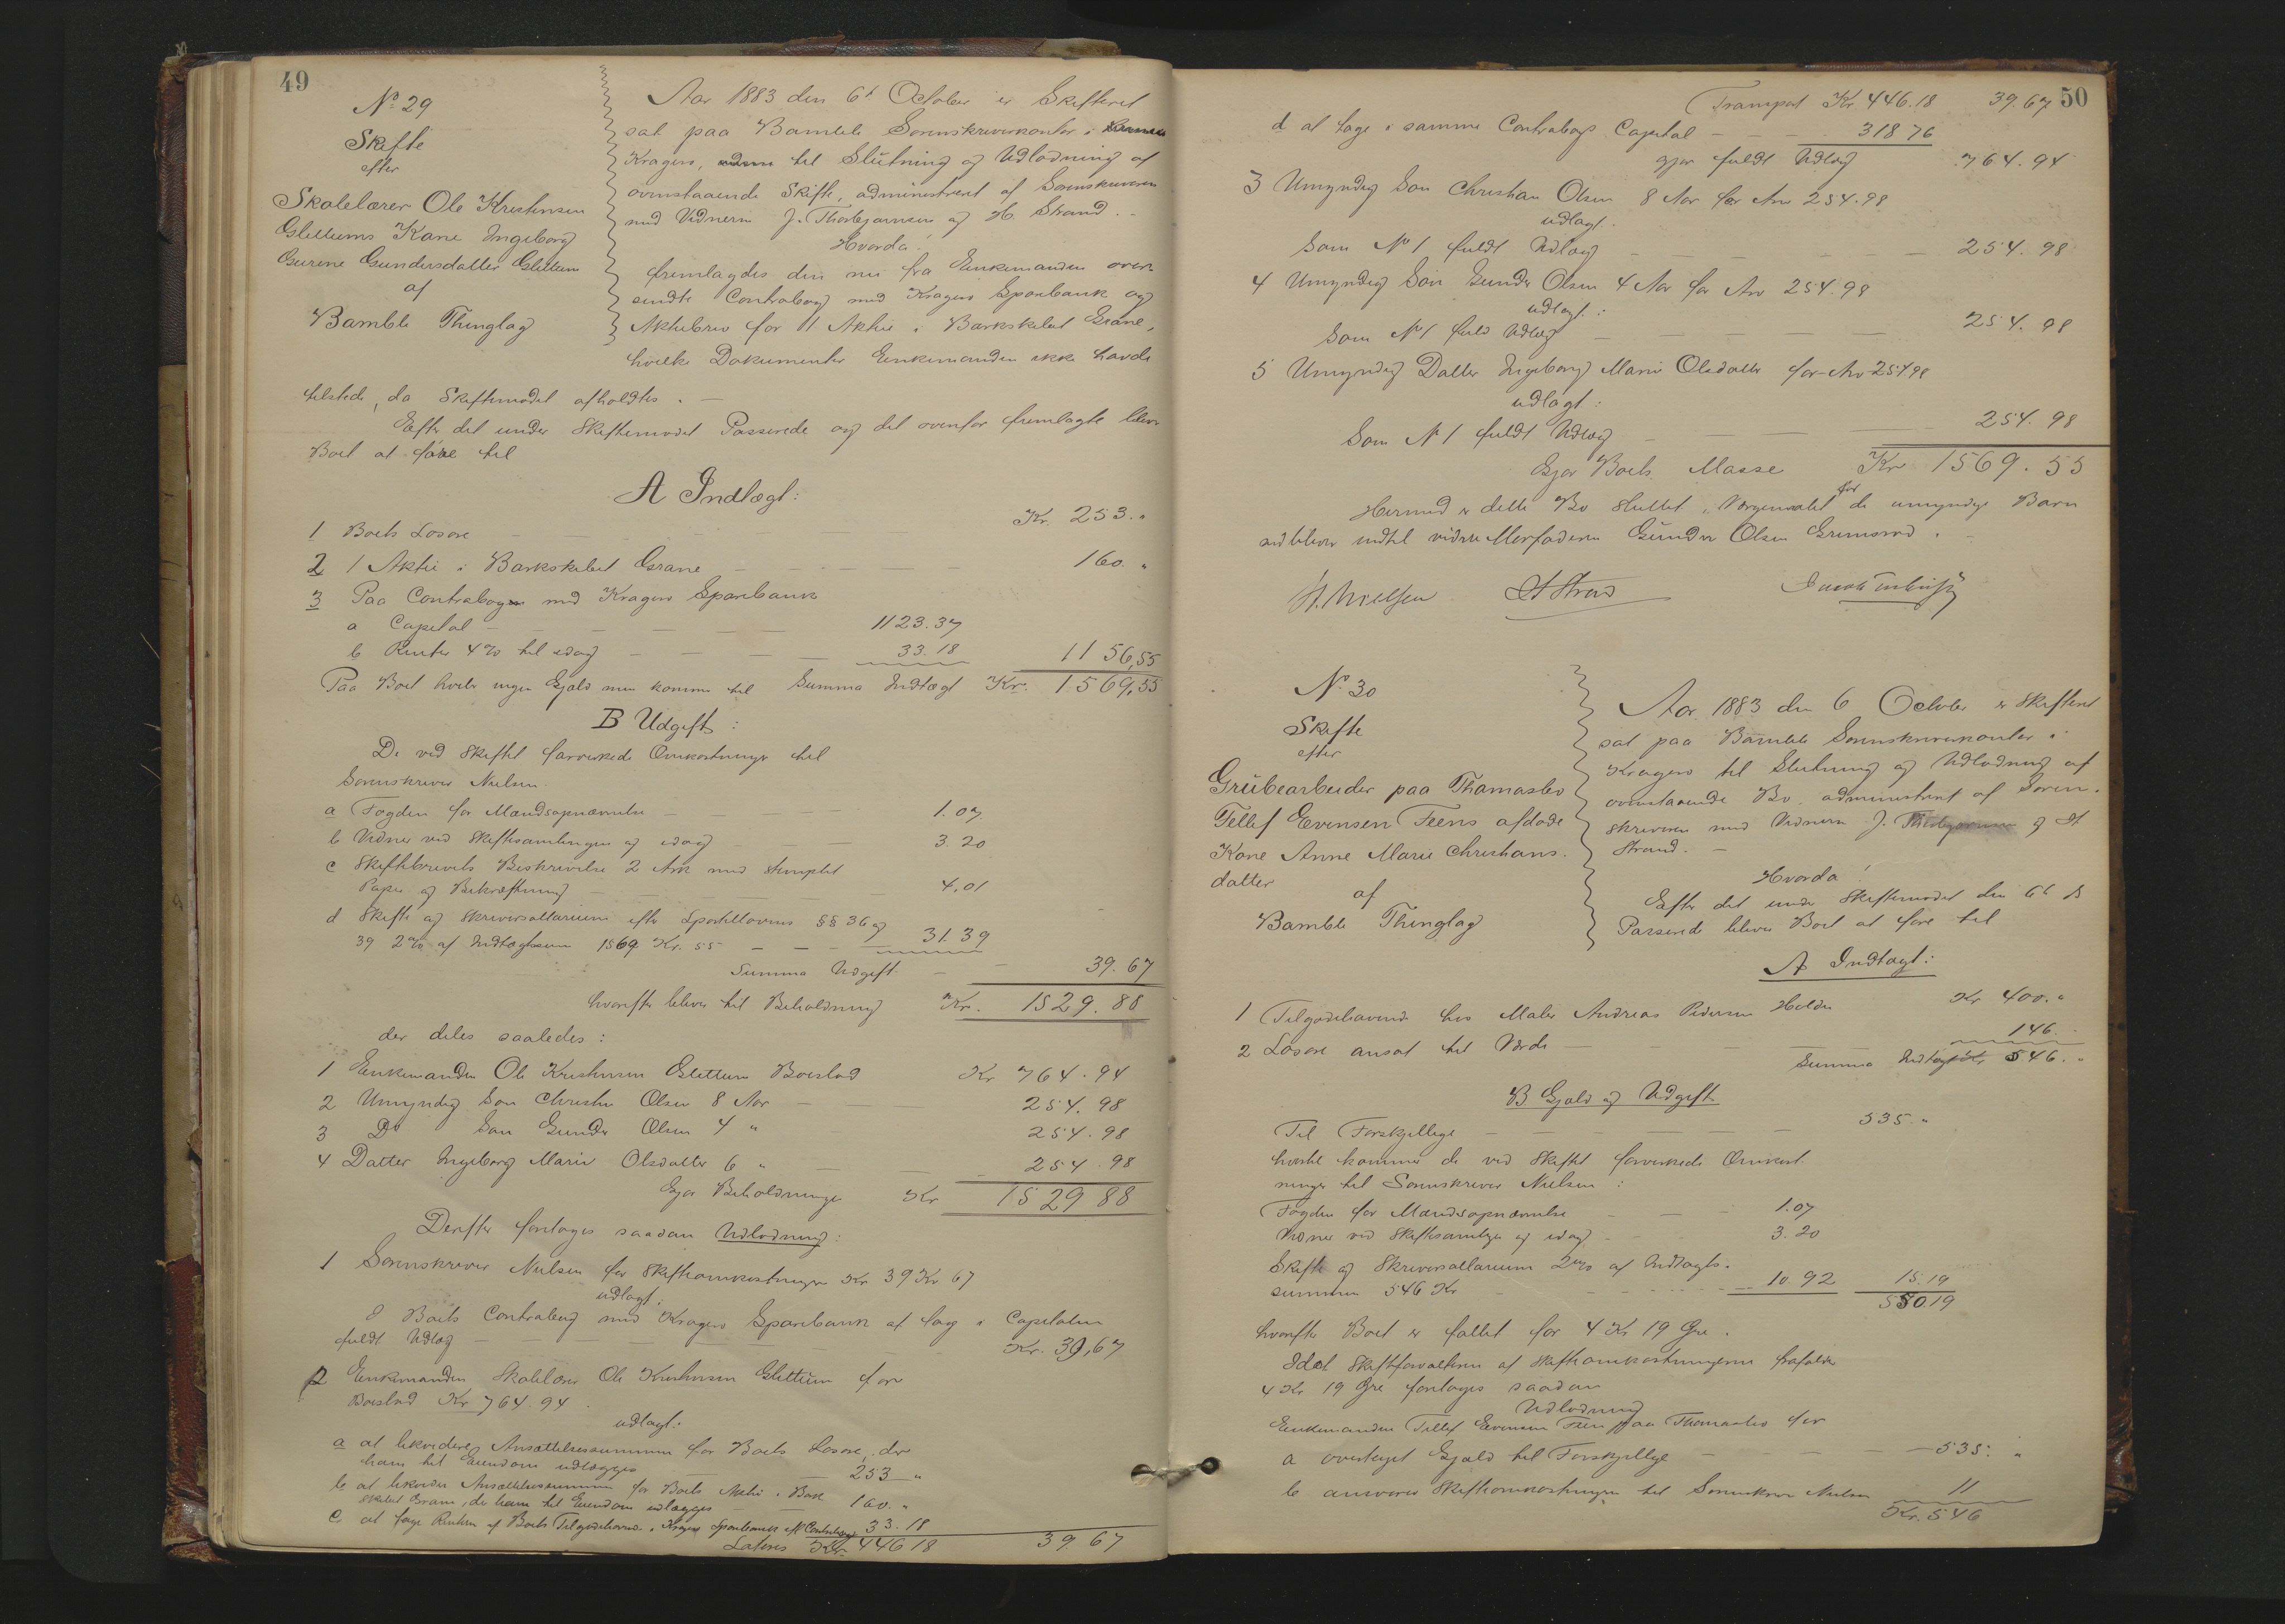 49
No 29
Skifte
efter
Skolelærer Ole Kristensen
Glittums Kone Ingeborg
Gurine Gundersdatter Glittum
af
Bamble Thinglag
Aar 1883 den 6t October er Skifteret
sat paa Bamble Sorenskriverkontor i
Kragerø, til Slutning og Udlodning af
ovenstaaende Skifte, administreret af Sorenskriveren
med Vidnerne J. Thorbjørnsen og H. Strand. -
Hvorda!
fremlagdes den nu fra Enkemanden over-
sendte Contrabog med Kragerø Sparebank og
Aktiebrev for 1 Aktie i Barkskibet Grane,
hvilke Dokumenter Enkemanden ikke havde
tilstede, da Skiftemødet afholdtes. -
Efter det under Skiftemødet Passerede og det ovenfor fremlagte bliver
Boet at føre til
A Indtægt:
1 Boets Løsøre Kr. 253. "
2 1 Aktie i Barkskibet Grane 160. "
3 Paa Contrabogen med Kragerø Sparebank
a Capital 1123.37
b Renter 4% til idag 33.18 1156,55
Paa Boet hviler ingen Gjæld men kommer til Summa Indtægt Kr. 1569,55
B Udgift:
De ved Skiftet forvirkede Omkostninger til
Sorenskriver Nielsen.
a Fogden for Mændsopnævnelse 1.07
b Vidner ved Skiftesamlingen og idag 3.20
c Skiftebrevets Beskrivelse 2 Ark med stemplet
Papir og Bekræftning 4,01
d Skifte og Skriversallarium efter Sportellovens §§ 36 og
39 2% af Indtægtssum 1569 Kr. 55 31.39
Summa Udgift 39.67
hvorefter bliver til Beholdning Kr. 1529.88
der deles saaledes:
1 Enkemanden Ole Kristensen Glittum Boeslod Kr 764.94
2 Umyndig Søn Christen Olsen 8 Aar 254.98
3 Do Søn Gunder Olsen 4 " 254.98
4 Datter Ingeborg Marie Olsdatter 6 " 254.98
Gjør Beholdningen Kr 1529 88
Derefter foretages saadan Udlodning:
1 Sorenskriver Nielsen for Skifteomkostninger Kr 39 Kr 67
udlagt.
I Boets Contrabog med Kragerø Sparebank at tage i Capitalen
fuldt Udlæg Kr. 39,67
2 Enkemanden Skolelærer Ole Kristensen Glittum for
Boeslod Kr 764.94.
udlagt:
a at likvidere Ansættelsessummen for Boets Løsøre, der
ham til Eiendom udlægges 253 "
b at likvidere Ansættelsessummen for Boets Aktie i Bark
skibet Grane, der ham til Eiendom udlægges 160. "
c at tage Renten af Boets Tilgodehavende i Kragerø Sparebank Contrabog 33.18
Lateris Kr. 446 18 39.67
50
Transport Kr 446.18 39.67
d at tage i samme Contrabogs Capital 318 76
gjør fuldt Udlæg 764.94
3 Umyndig Søn Christian Olsen 8 Aar for Arv 254.98
udlagt.
Som No 1 fuldt Udlæg 254.98
4 Umyndig Søn Gunder Olsen 4 Aar for Arv 254.98
udlagt:
Som No 1 fuld Udlæg 254.98
5 Umyndig Datter Ingeborg Marie Olsdatter for Arv 254 98
udlagt:
Som No 1 fuldt Udlæg 254.98
Gjør Boets Masse Kr 1569.55
Hermed er dette Bo sluttet, Værgemaalet for de umyndige Børn
indtil videre Morfaderen Gunder Olsen .
H. Nielsen H Strand
No 30
Skifte
efter
Grubearbeider paa Thomasbo
Tellef Evensen Feens afdøde
Kone Anne Marie Christians-
datter
af
Bamble Thinglag
Aar 1883 den 6 October er Skifteret
sat paa Bamble Sorenskriverkontor i
Kragerø til Slutning og Udlodning af
ovenstaaende Bo, administreret af Soren-
skriveren med Vidnerne J. Thorbjørnsen og H
Strand. -
Hvorda!
Efter det under Skiftemødet den 6t ds
Passerede bliver Boet at føre til
A Indtægt:
1 Tilgodehavende hos Maler Andreas Pedersen Kr 400. "
2 Løsøre ansat til Værdi 146.
Summa Indtægt Kr 546. "
B Gjæld og Udgift
Til Forskjellige 535. "
hvortil kommer de ved Skiftet forvirkede Omkost-
ninger til Sorenskriver Nielsen:
Fogden for Mændsopnævnelse 1.07
Vidner ved Skiftesamlingen og idag 3.20
Skifte og Skriversallarium 2% af Indtægts-
summen 546 Kr 10.92 15.19
550 19
hvorefter Boet er fallit for 4 Kr 19 Øre.
Idet Skifteforvalteren af Skifteomkostningerne frafalder
4 Kr 19 Øre foretages saadan
Udlodning
Enkemanden Tellef Evensen Feen paa Thomasbo for
a overtaget Gjæld til Forskjellige 535: "
b ansvarer Skifteomkostninger til Sorenskriver Nielsen 11
Kr. 546